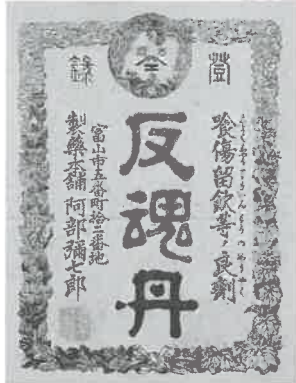 登錄
全
喰傷留飲等ノ良劑
反魂丹
富山市五番町拾二番地
製藥本舗 阿部彌七郎